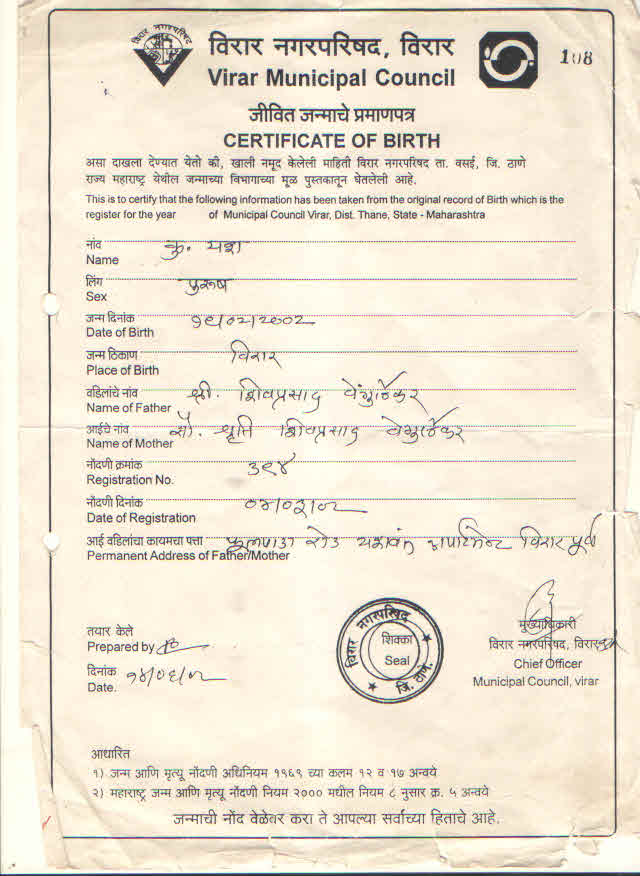 विरार नगरपरिषद
विरार नगरपरिषद, विरार
Virar Municipal Council
108
जीवित जन्माचे प्रमाणपत्र
CERTIFICATE OF BIRTH
असा दाखला देण्यात येतो की, खाली नमूद केलेली माहिती विरार नगरपरिषद ता. वसई, जि. ठाणे
राज्य महाराष्ट्र येथील जन्माच्या विभागाच्या मूळ पुस्तकातून घेतलेली आहे.
This is to certify that the following information has been taken from the original record of Birth which is the
register for the year of Municipal Council Virar, Dist. Thane, State - Maharashtra
नांव कु. यश
Name
लिंग पुरूष
Sex
जन्म दिनांक १९/०२/२००२
Date of Birth
जन्म ठिकाण विरार
Place of Birth
वडिलांचे नांव श्री. शिवप्रसाद
Name of Father
आईचे नांव सौ. शिवप्रसाद
Name of Mother
नोंदणी क्रमांक ३९४
Registration No.
नोंदणी दिनांक ०४/०३/०२
Date of Registration
आई वडिलांचा कायमचा पत्ता फुलपाडा रोड यशवंत अपार्टमेन्ट विरार पूर्व
Permanent Address of Father/Mother
तयार केले
Prepared by
दिनांक
Date. १४/०६/०२
विरार नगरपरिषद
शिक्का
Seal
जि. ठाणे.
मुख्याधिकारी
विरार नगरपरिषद, विरार
Chief Officer
Municipal Council, virar
आधारित
१) जन्म आणि मृत्यू नोंदणी अधिनियम १९६९ च्या कलम १२ व १७ अन्वये
२) महाराष्ट्र जन्म आणि मृत्यू नोंदणी नियम २००० मधील नियम ८ नुसार क्र. ५ अन्वये
जन्माची नोंद वेळेवर करा ते आपल्या सर्वाच्या हिताचे आहे.